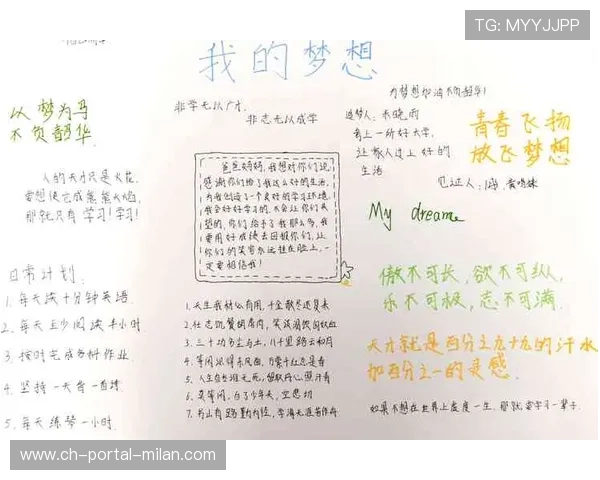 TG: MYYJJPP
我的梦想
以梦为马
不负韶华
非学无以广才,
非志无以成学
为梦想加油不负韶华!
追梦人:
考上一所好大学,
让家人过上好的
生活
见证人:
青春飞扬
放飞梦想
人的天才只是火花,
要想使它成熊熊火焰,
那就只有学习!学习!
爸爸妈妈,我想对你们说,
感谢你们给了我这么好的生活,
为我创造了一个良好的学习环境,
我会好好学习的,不会让你们失
望的,你们给予了我那么多,我
要用好成绩去回报你们,让
你们的笑容永远挂在脸上,一
定要相信我!
My dream
日常计划:
1. 每天读十分钟英语.
2. 每天至少阅读半小时
3. 按时完成各科作业
4. 坚持一天背一首诗
5. 每天练琴一小时.
1. 天生我材必有用,千金散尽还复来
2. 壮志饥餐胡虏肉,笑谈渴饮匈奴血
3. 三十功名尘与土,八千里路云和月
4. 等闲识得东风面,万紫千红总是春
5. 人生自古谁无死,留取丹心照汗青
6. 莫等闲,白了少年头,空悲切
7. 书山有路勤为径,学海无涯苦作舟
傲不可长,欲不可纵,
乐不可极,志不可满.
天才就是百分之九十九的汗水
加百分之一的灵感.
如果不想在世界上虚度一生,那就要学习一辈子.
www.ch-portal-milan.com